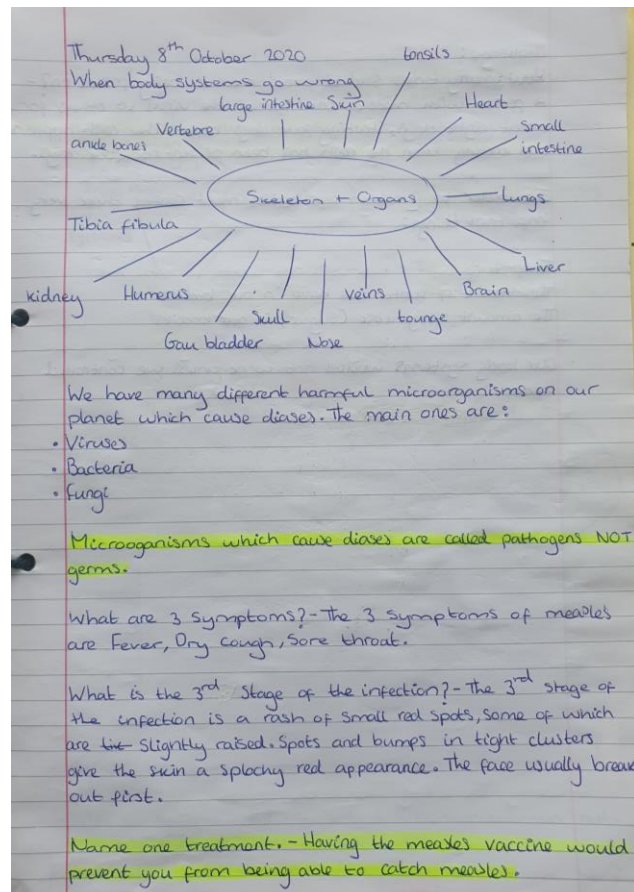 Thursday 8th October 2020
When body systems go wrong
tonsils
large intestine
Skin
Heart
Vertebre
Small
intestine
ankle bones
Skeleton + Organs
Lungs
Tibia fibula
Liver
kidney
Humerus
Skull
veins
Brain
Gall bladder
Nose
tounge
We have many different harmful microorganisms on our
planet which cause diases. The main ones are:
• Viruses
• Bacteria
• Fungi
Microoganisms which cause diases are called pathogens NOT
germs.
What are 3 Symptoms? - The 3 symptoms of measles
are Fever, Dry cough, Sore throat.
What is the 3rd Stage of the infection? - The 3rd stage of
the infection is a rash of small red spots, some of which
are Slightly raised. Spots and bumps in tight clusters
give the skin a splochy red appearance. The face usually break
out first.
Name one treatment. - Having the measles vaccine would
prevent you from being able to catch measles.